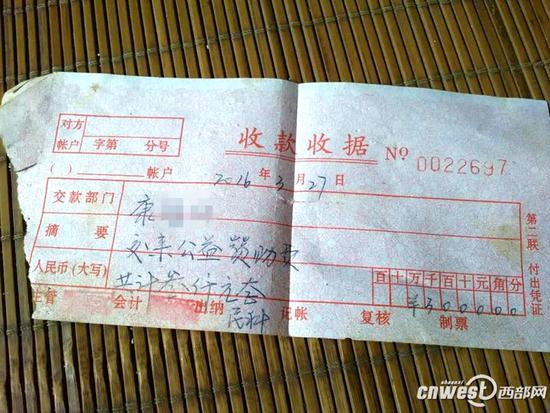 对方
帐户 字第 分号
收款收据 No 0022697
( ) 帐户 2016 年 3 月 27 日
交款部门 康
摘 要 交来公益资助费
人民币(大写) 共计叁仟元
百十万千百十元角分
¥300000
主管 会计 出纳 记帐 复核 制票
第二联 付出凭证
channel
cnwest 西部网